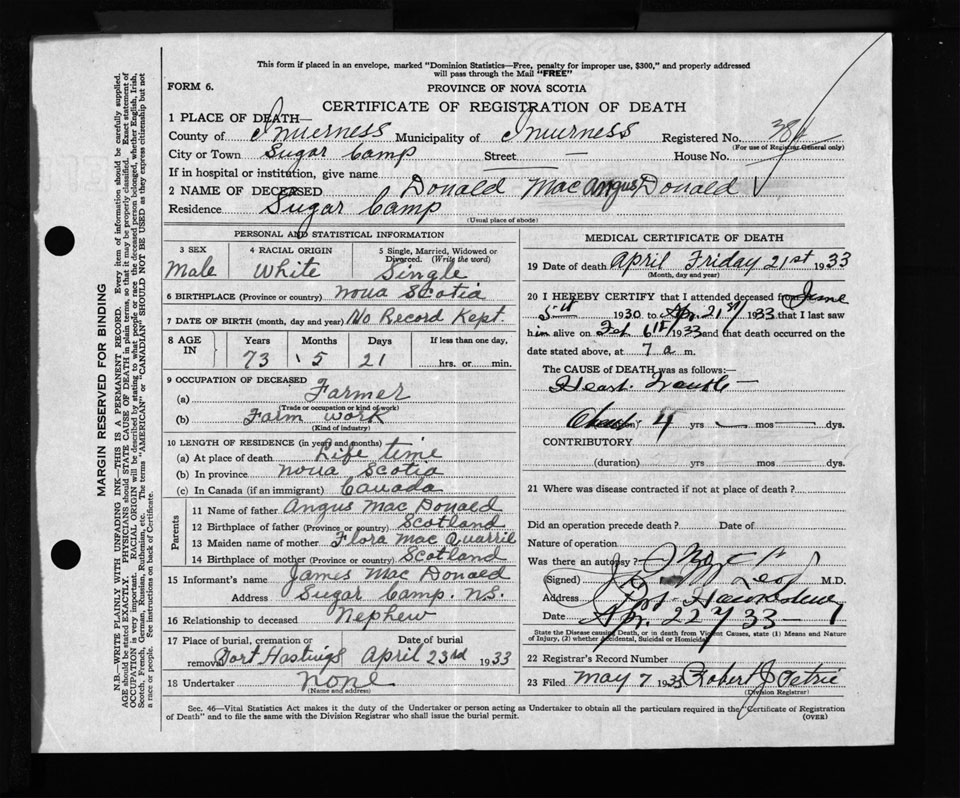 This form if placed in an envelope, marked "Dominion Statistics—Free, penalty for improper use, $300," and properly addressed
will pass through the Mail "FREE"
FORM 6.
PROVINCE OF NOVA SCOTIA
CERTIFICATE OF REGISTRATION OF DEATH
1 PLACE OF DEATH—
County of Inverness Municipality of Inverness Registered No.
(For use of Registrar General only)
City or Town Sugar Camp Street — House No.
If in hospital or institution, give name
2 NAME OF DECEASED Donald Mac Angus Donald
Residence Sugar Camp
(Usual place of abode)
PERSONAL AND STATISTICAL INFORMATION
3 SEX Male
4 RACIAL ORIGIN White
5 Single, Married, Widowed or Divorced. (Write the word) Single
6 BIRTHPLACE (Province or country) Nova Scotia
7 DATE OF BIRTH (month, day and year) No Record Kept.
8 AGE IN Years 73 Months 5 Days 21 If less than one day, hrs. or min.
9 OCCUPATION OF DECEASED
(a) Farmer
(Trade or occupation or kind of work)
(b) Farm work
(Kind of industry)
10 LENGTH OF RESIDENCE (in years and months)
(a) At place of death Life time
(b) In province Nova Scotia
(c) In Canada (if an immigrant) Canada
Parents
11 Name of father Angus Mac Donald
12 Birthplace of father (Province or country) Scotland
13 Maiden name of mother Flora Mac Quarrie
14 Birthplace of mother (Province or country) Scotland
15 Informant's name James Mac Donald
Address Sugar Camp. N.S.
16 Relationship to deceased Nephew
17 Place of burial, cremation or removal Port Hastings Date of burial April 23rd 1933
18 Undertaker None
(Name and address)
MEDICAL CERTIFICATE OF DEATH
19 Date of death April Friday 21st 1933
(Month, day and year)
20 I HEREBY CERTIFY that I attended deceased from June
1930 to Apr. 21st 1933 that I last saw
him alive on Feb 6th 1933 and that death occurred on
date stated above, at 7 a m.
The CAUSE of DEATH was as follows:—
Heart Trouble —
4 yrs — mos — dys.
CONTRIBUTORY
(duration) yrs mos dys.
21 Where was disease contracted if not at place of death?
Did an operation precede death? Date of
Nature of operation
Was there an autopsy?
(Signed) M.D.
Address Port Hawkesbury
Date Apr. 22 / 33
State the Disease causing Death, or in death from Violent Causes, state (1) Means and Nature
of Injury, (2) whether Accidental, Suicidal or Homicidal.
22 Registrar's Record Number
23 Filed May 7 1933 Robert J Petrie
(Division Registrar)
Sec. 46—Vital Statistics Act makes it the duty of the Undertaker or person acting as Undertaker to obtain all the particulars required in the "Certificate of Registration
of Death" and to file the same with the Division Registrar who shall issue the burial permit.
(OVER)
MARGIN RESERVED FOR BINDING
N.B.—WRITE PLAINLY WITH UNFADING INK—THIS IS A PERMANENT RECORD. Every item of information should be carefully supplied.
AGE should be stated EXACTLY. PHYSICIANS should STATE CAUSE OF DEATH in plain terms, so that it may be properly classified. Exact statement of
OCCUPATION is very important. RACIAL ORIGIN will be described by stating to what people or race the deceased person belonged, whether English, Irish,
Scotch, French, German, Russian, Ruthenian, etc. The terms "AMERICAN" or "CANADIAN" SHOULD NOT BE USED as they express citizenship but not
a race or people. See instructions on back of Certificate.